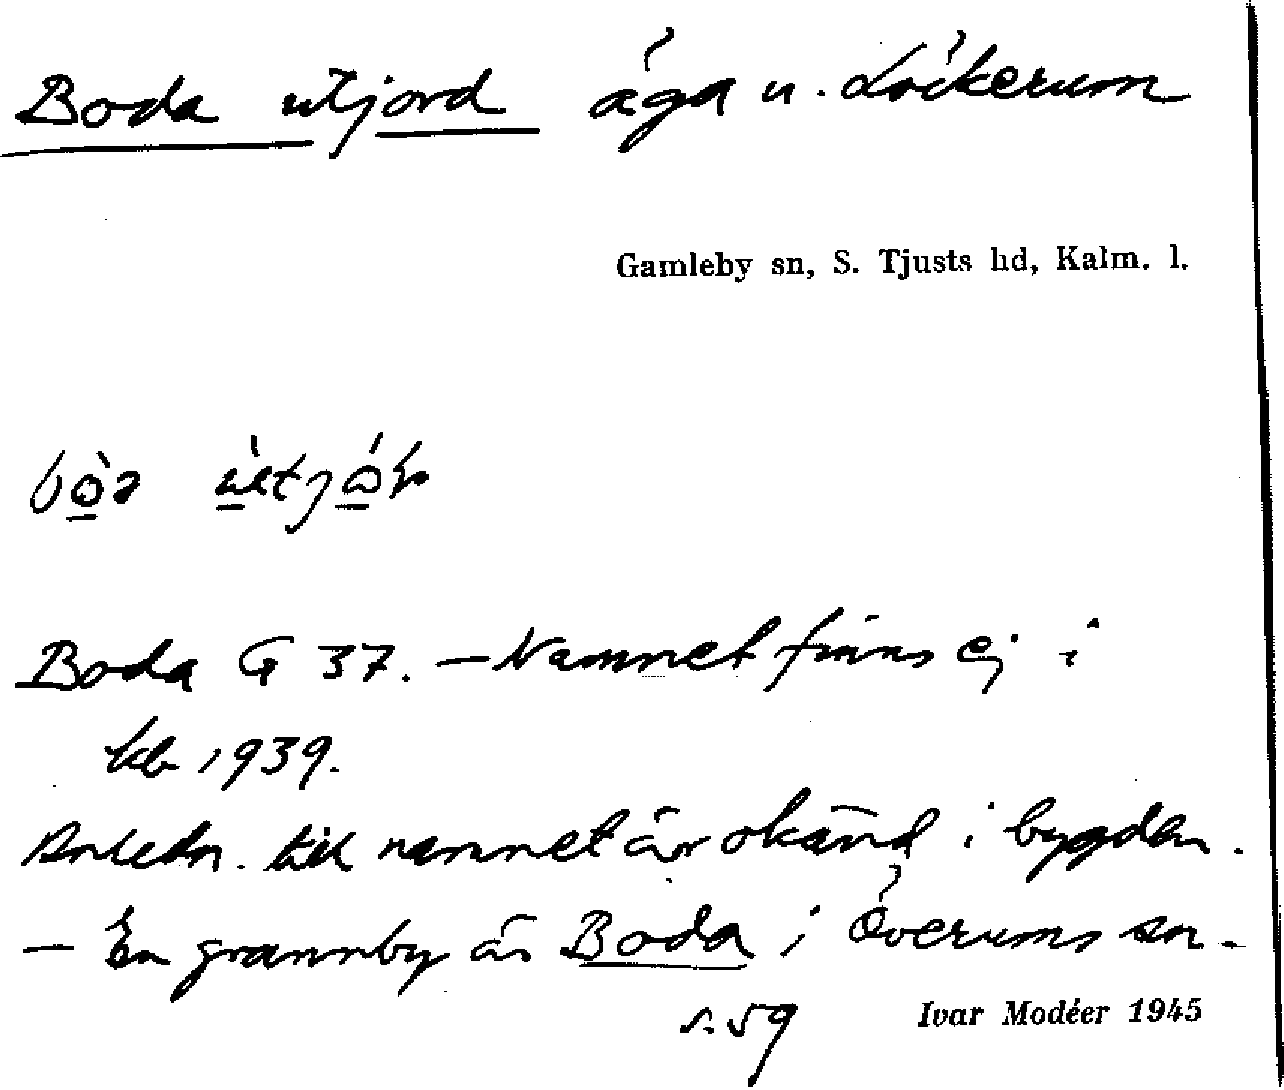 Boda utjord äga u. Löckerum
Gamleby sn, S. Tjusts hd, Kalm. l.
Boda G 37. – Namnet finns ej i
kb 1939.
Anledn. till namnet är okänd i bygden.
– En grannby är Boda i Överums sn.
s. 59
Ivar Modéer 1945